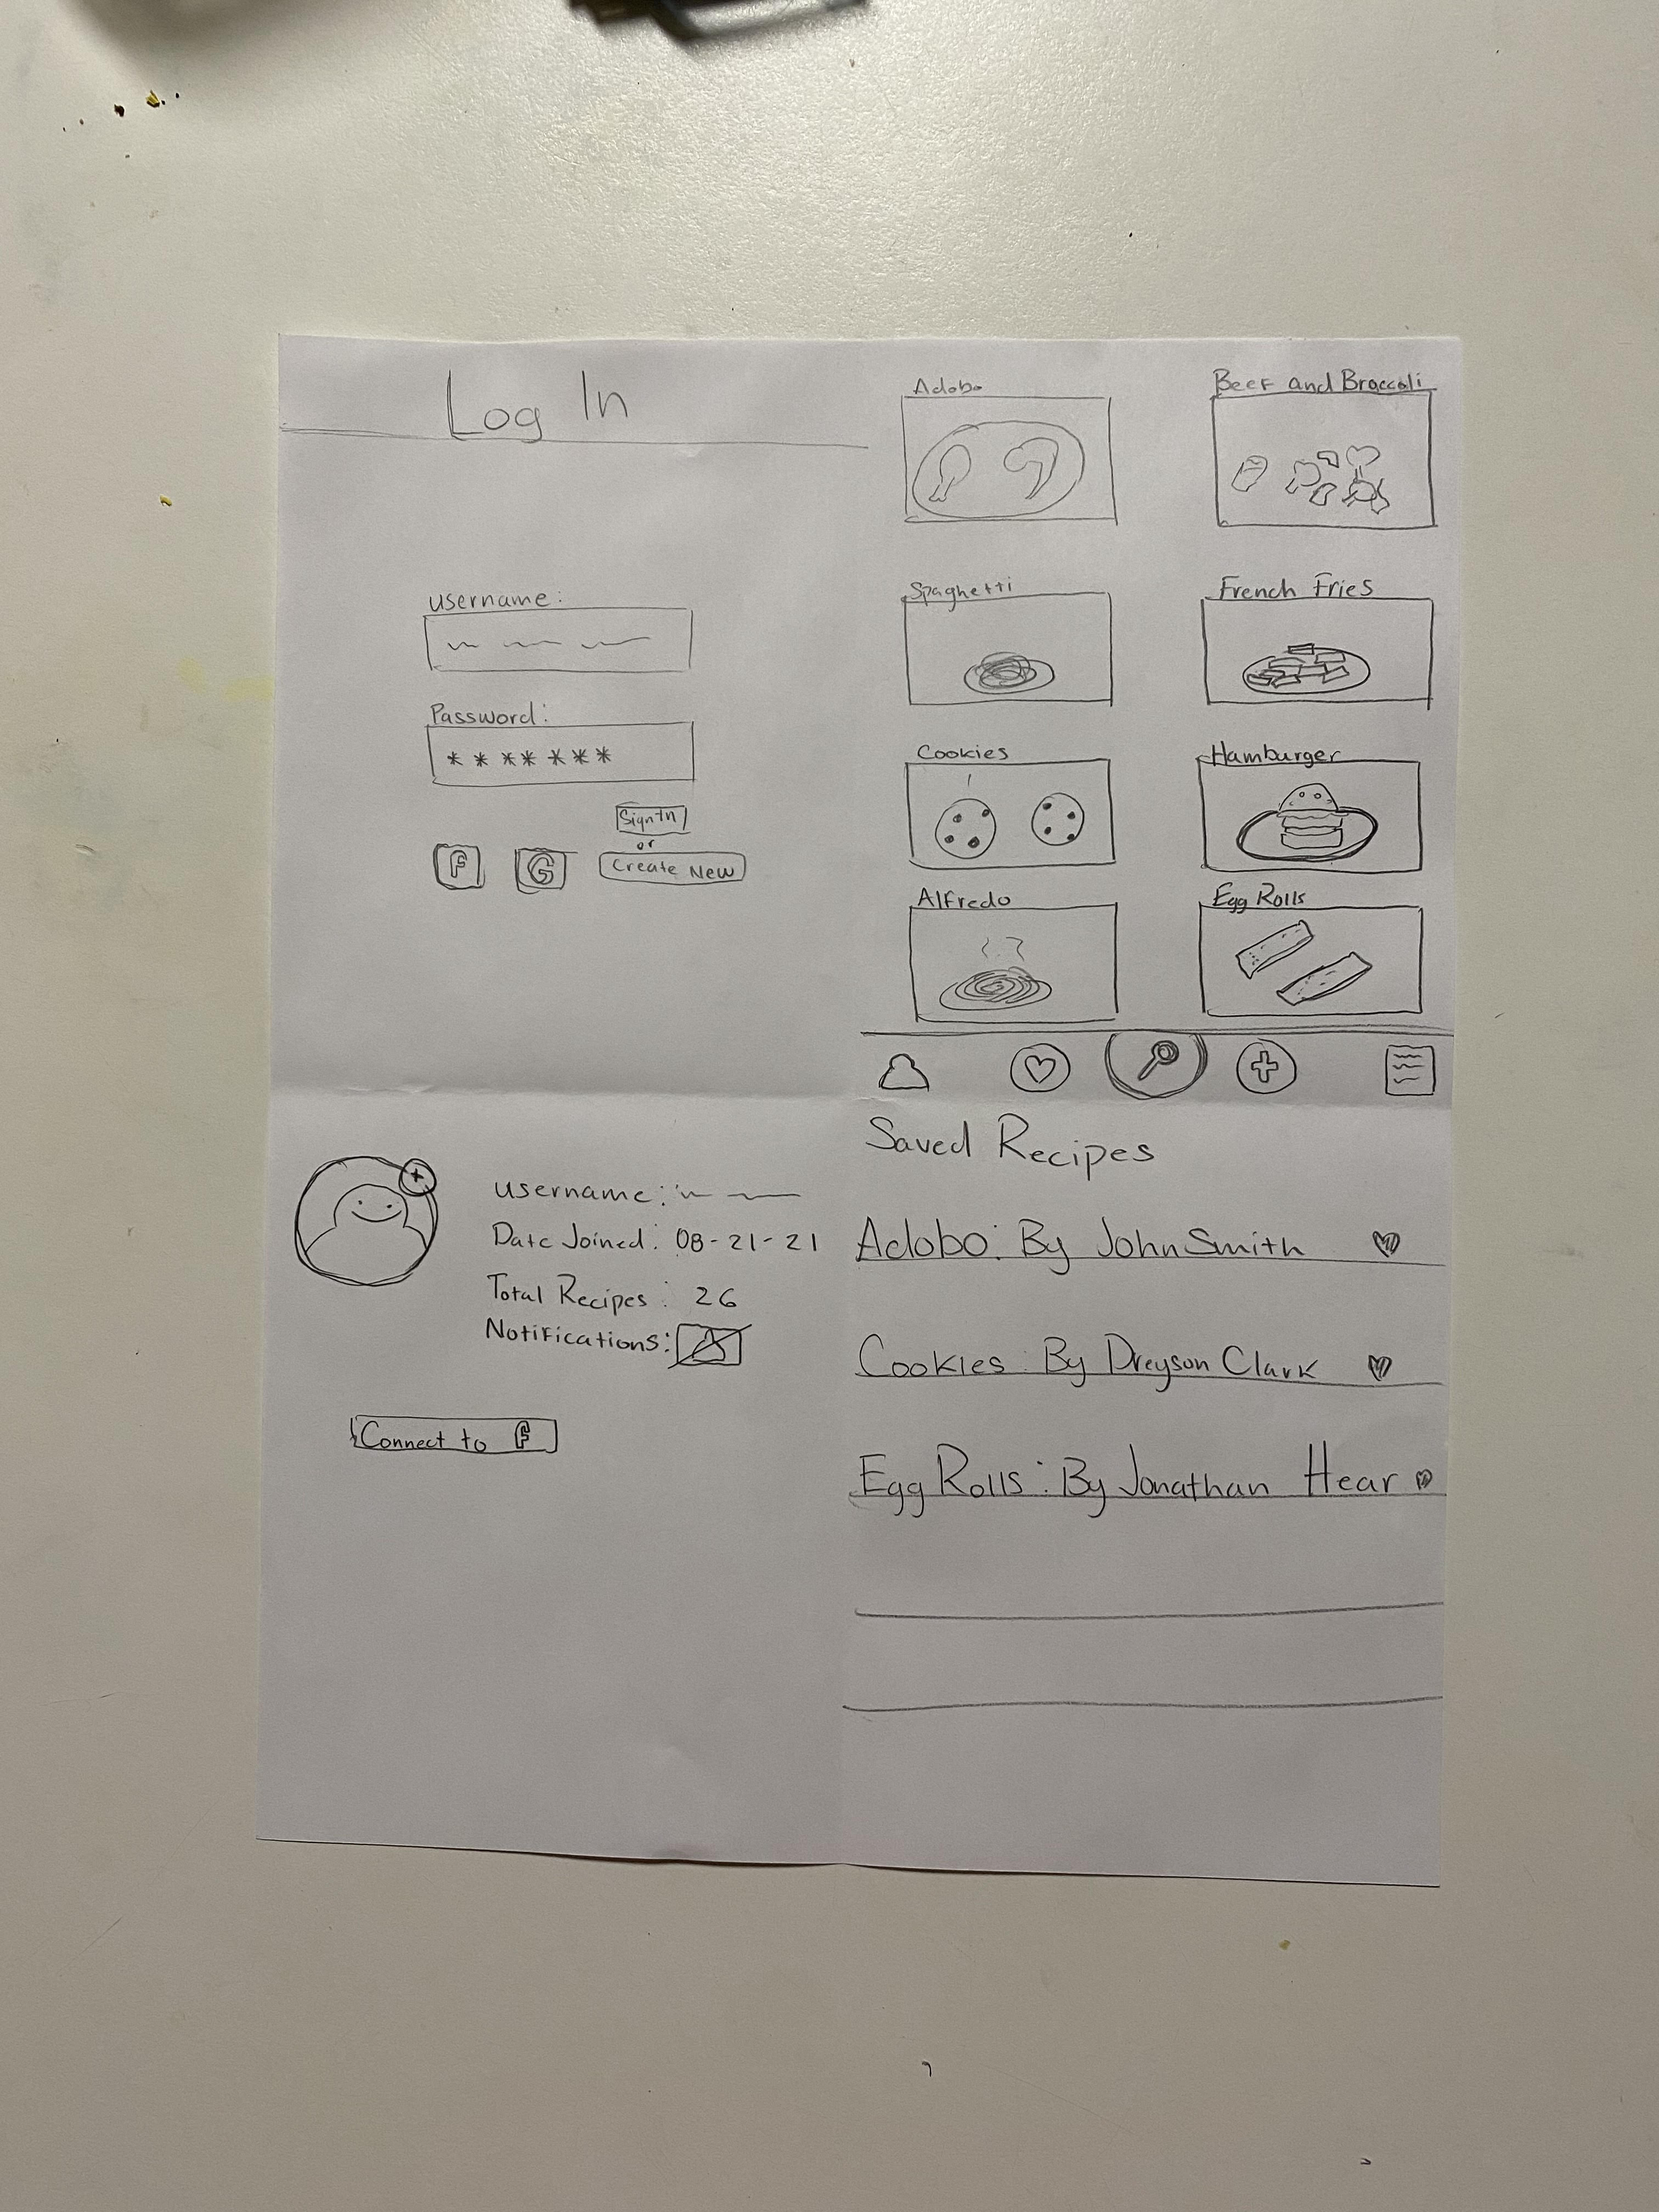 Log In
username:
Password:
* * * * * * *
Sign In
or
F G Create New
Adobo
Beef and Braccoli
Spaghetti
French Fries
Cookies
Hamburger
Alfredo
Egg Rolls
username:
Date Joined: 08-21-21
Total Recipes: 26
Notifications:
Connect to F
Saved Recipes
Adobo: By John Smith
Cookies: By Dreyson Clark
Egg Rolls: By Jonathan Hear